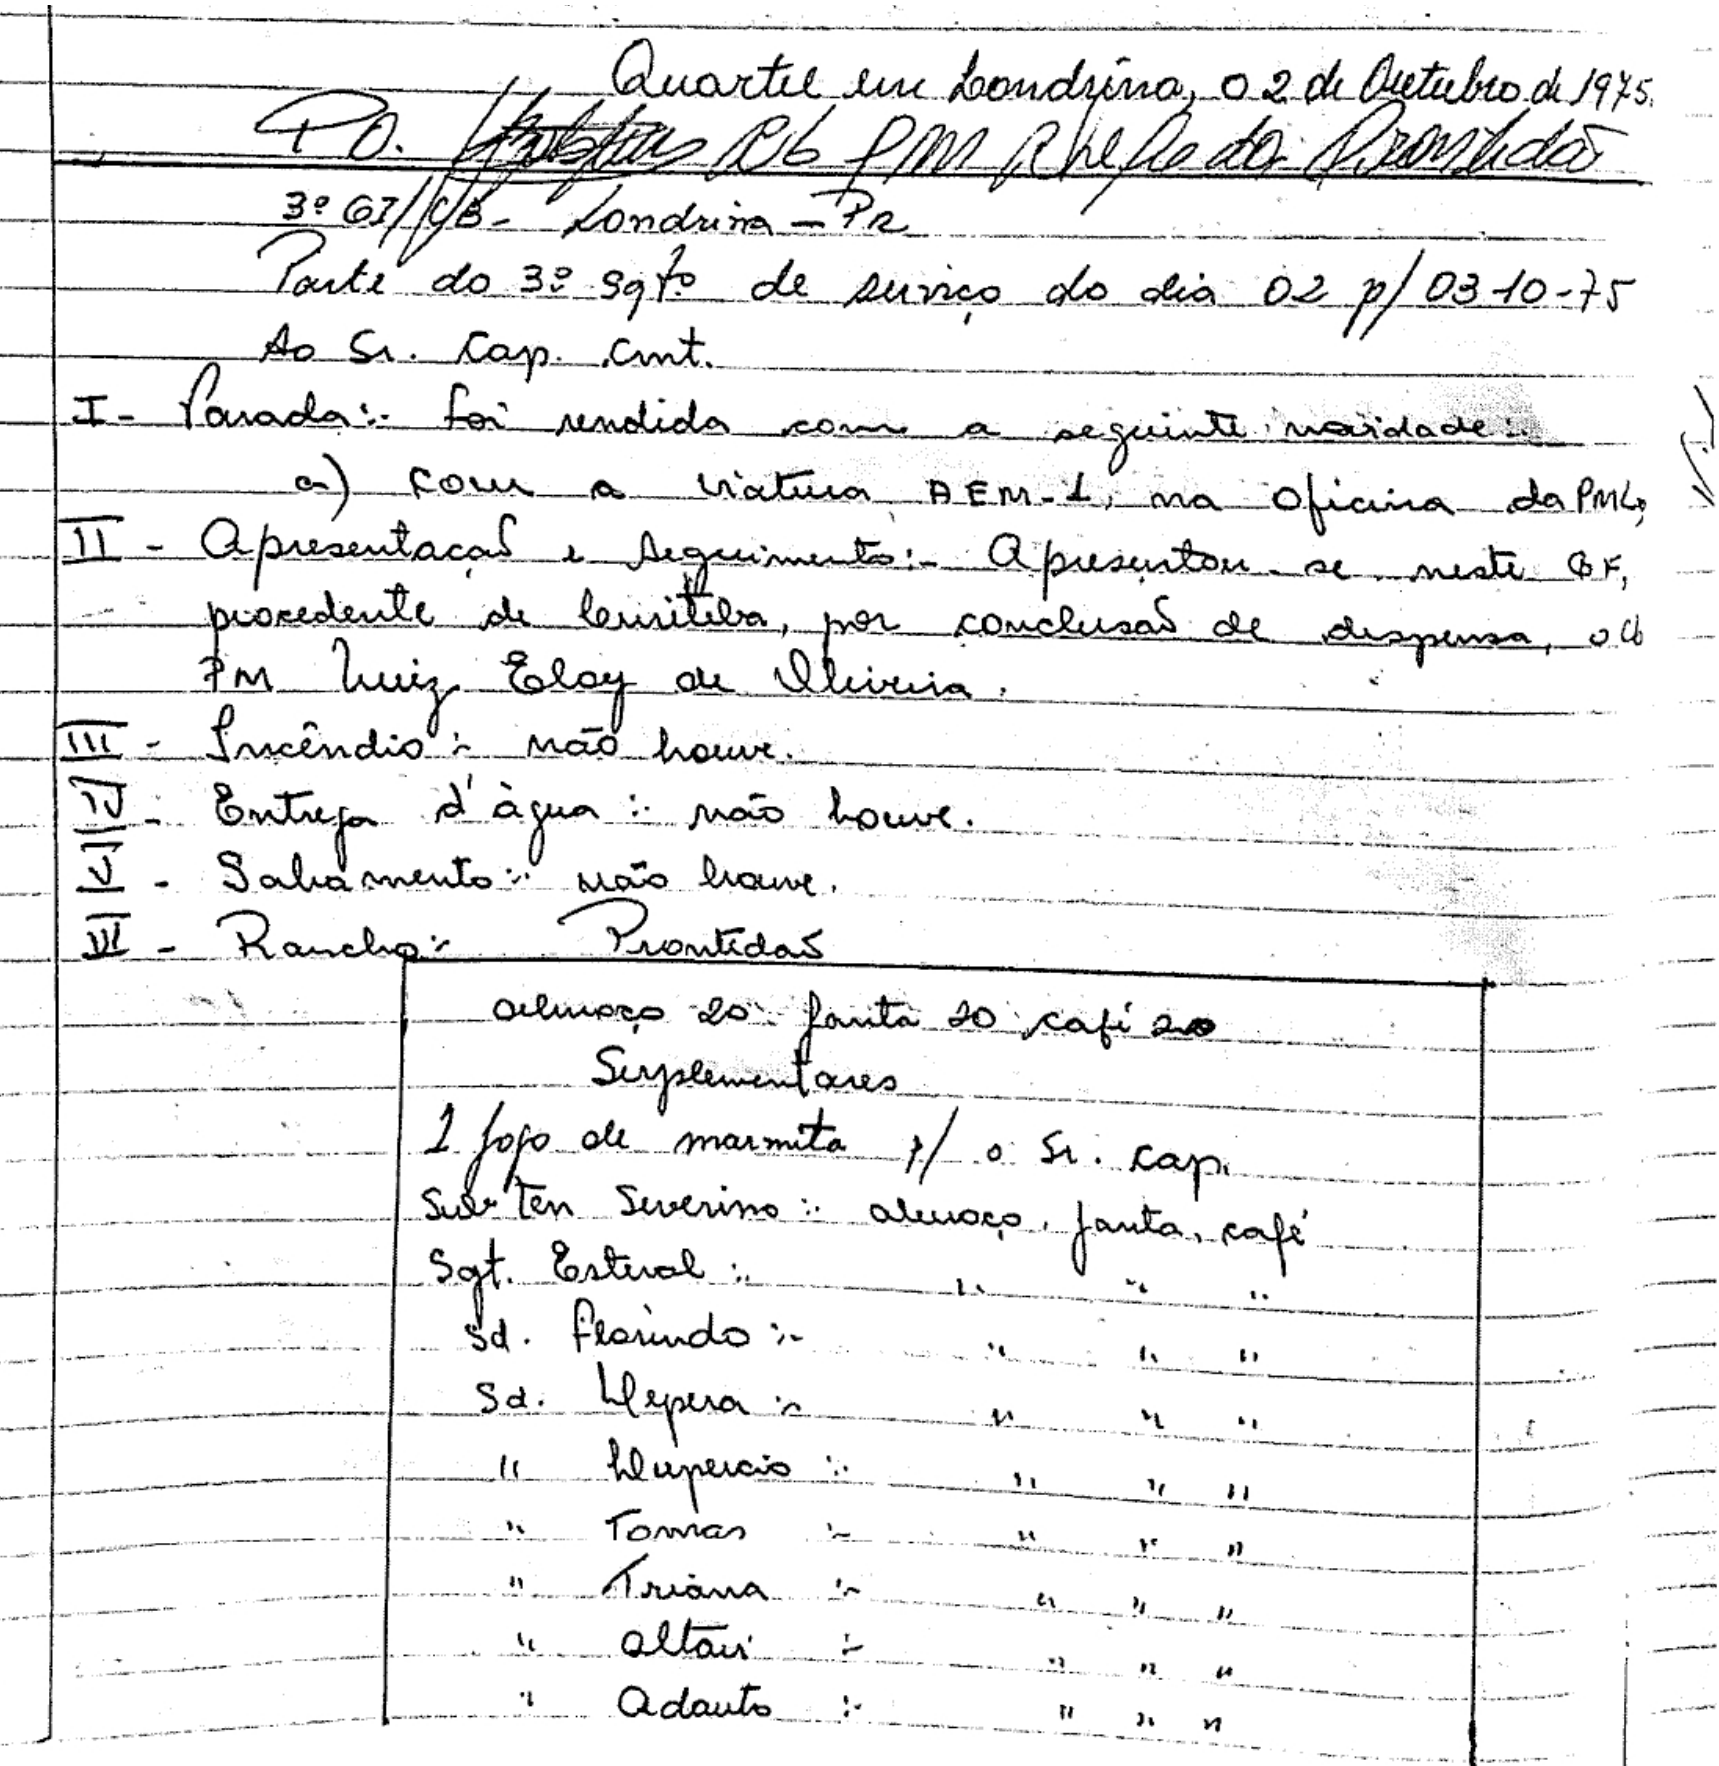 Quartel em Londrina, 02 de Outubro de 1975.
P.O. PM Chefe da Prontidão
3º GI/CB - Londrina - PR
Parte do 3º Sgtº de serviço do dia 02 p/ 03-10-75
Ao Sr. Cap. Cmt.
I - Parada:- foi rendida com a seguinte novidade:-
a) com a viatura AEM-1, na Oficina da PML,
II - Apresentação e seguimento:- Apresentou-se neste QF,
procedente de Curitiba, por conclusão de dispensa, o Cb
PM Luiz Eloy de Oliveira.
III - Incêndio:- não houve.
IV - Entrega d'àgua:- não houve.
V - Salvamento:- não houve.
VI - Rancho:- Prontidão
almoço 20 janta 20 café 20
Suplementares
1 jogo de marmita p/ o Sr. Cap.
Sub Ten Severino:- almoço, janta, café
Sgt. Estival:- " " "
Sd. Florindo:- " " "
Sd. :- " " "
" Lupercio:- " " "
" Tomas :- " " "
" Triana :- " " "
" Altair :- " " "
" Adauto :- " " "